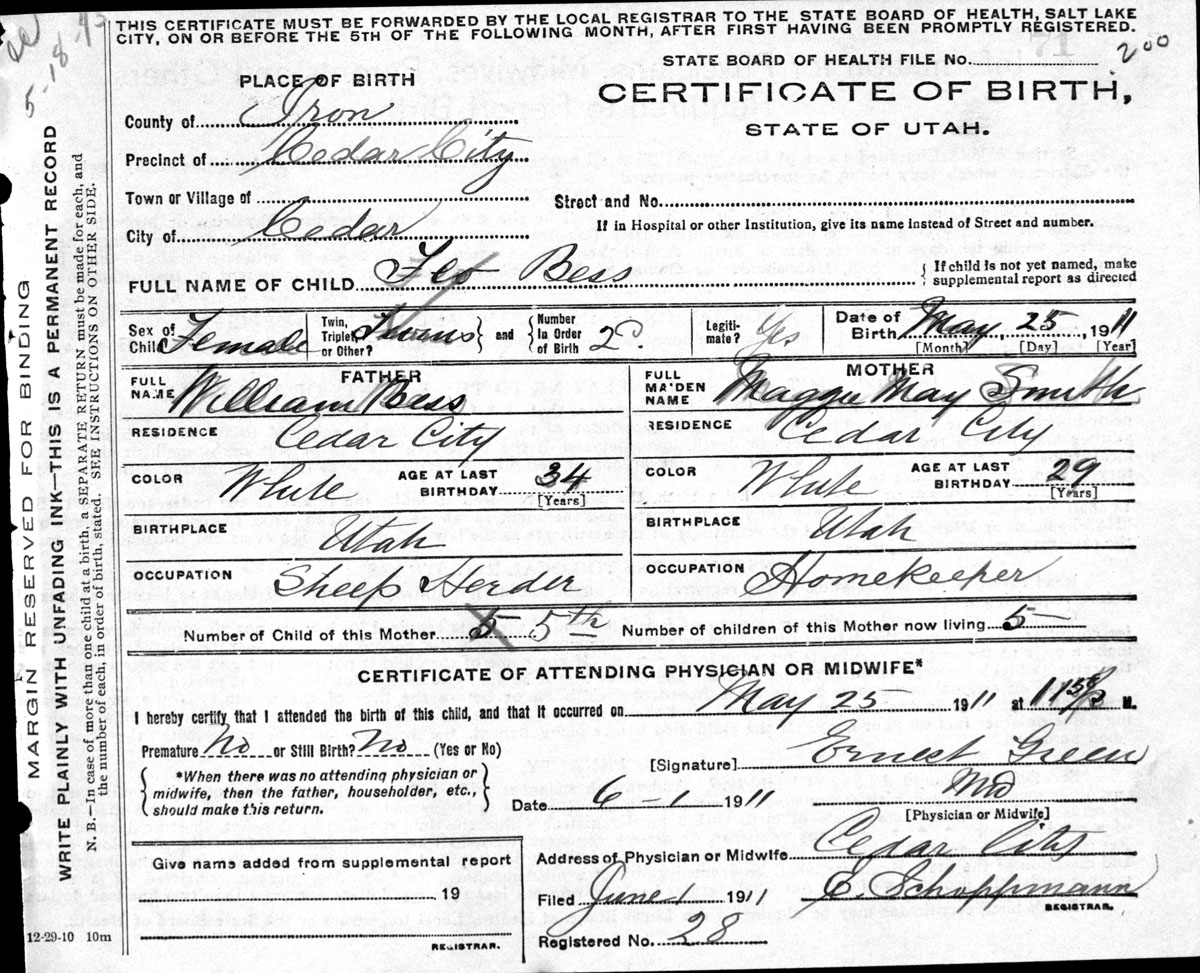 THIS CERTIFICATE MUST BE FORWARDED BY THE LOCAL REGISTRAR TO THE STATE BOARD OF HEALTH, SALT LAKE
CITY, ON OR BEFORE THE 5TH OF THE FOLLOWING MONTH, AFTER FIRST HAVING BEEN PROMPTLY REGISTERED.
5-18
MARGIN RESERVED FOR BINDING
WRITE PLAINLY WITH UNFADING INK—THIS IS A PERMANENT RECORD
N. B.—In case of more than one child at a birth, a SEPARATE RETURN must be made for each, and
the number of each, in order of birth, stated. SEE INSTRUCTIONS ON OTHER SIDE.
STATE BOARD OF HEALTH FILE No. 200
CERTIFICATE OF BIRTH,
STATE OF UTAH.
PLACE OF BIRTH
County of Iron
Precinct of Cedar City
Town or Village of
City of Cedar
Street and No.
If in Hospital or other Institution, give its name instead of Street and number.
FULL NAME OF CHILD Flo Bess
If child is not yet named, make
supplemental report as directed
Sex of Child Female
Twin, Triplet, or Other? Twins and Number in Order of Birth 2
Legiti-mate? Yes
Date of Birth May 25, 1911
[Month] [Day] [Year]
FATHER
FULL NAME William Bess
RESIDENCE Cedar City
COLOR White AGE AT LAST BIRTHDAY 34 [Years]
BIRTHPLACE Utah
OCCUPATION Sheep Herder
MOTHER
FULL MAIDEN NAME Maggie May Smith
RESIDENCE Cedar City
COLOR White AGE AT LAST BIRTHDAY 29 [Years]
BIRTHPLACE Utah
OCCUPATION Homekeeper
Number of Child of this Mother 5 5th Number of children of this Mother now living 5
CERTIFICATE OF ATTENDING PHYSICIAN OR MIDWIFE*
I hereby certify that I attended the birth of this child, and that it occurred on May 25 1911 at M.
Premature No or Still Birth? No (Yes or No)
*When there was no attending physician or
midwife, then the father, householder, etc.,
should make this return.
[Signature] Ernest Green
MD
[Physician or Midwife]
Date 6-1 1911
Give name added from supplemental report
19
REGISTRAR.
Address of Physician or Midwife Cedar City
Filed June 1 1911 E. Schoppmann
REGISTRAR.
Registered No. 28
12-29-10 10m